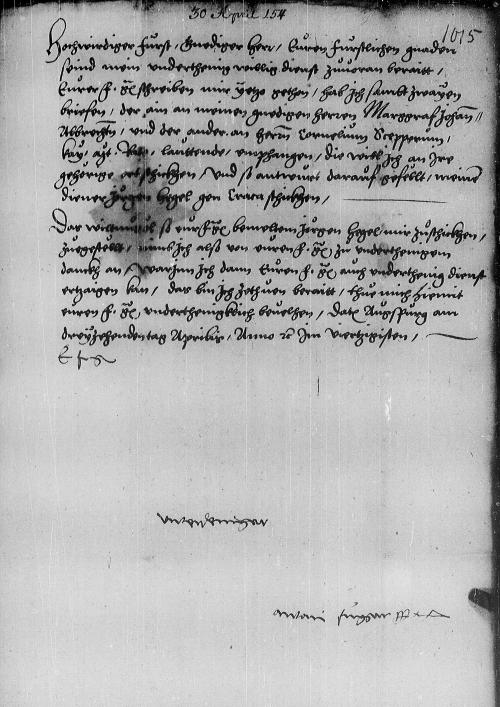 30 April 154
1015
Hochwirdiger Furst, Gnediger Herr, Euren Furstlichen gnaden
seind mein underthenig willig dienst zuuoran beraitt,
Eurer f. g. schreiben mir yetzo gethon, hab Ich sambt zwayen
briefen, der ain an meinen gnedigen herren Marggraf Johann
Albrechten, und der ander an herrn Cornelium Scepperum,
kay. Mt. Rat, lauttende, emphangen, die will Ich an Ire
gehörige ort schickhen, und so antwurt darauf gefellt, meinem
diener Jörgen Hegel gen Craca schickhen,
Das wirdt so eur f. g. bemeltem Jörgen Hegel mir zuschickhen,
zugestellt, nimb Ich alss von euren f. g. zu underthenigem
danckh an, Warjnn Ich dann Euren f. g. auch underthenig dienst
ertzaigen kan, das bin Ich zethuen beraitt, thue mich hiemit
euren f. g. underthenigklich beuelhen, Datum Augspurg am
dreyzehendentag Aprilis, Anno etc. Im Viertzigisten,
E f g
underteniger
antoni fugger